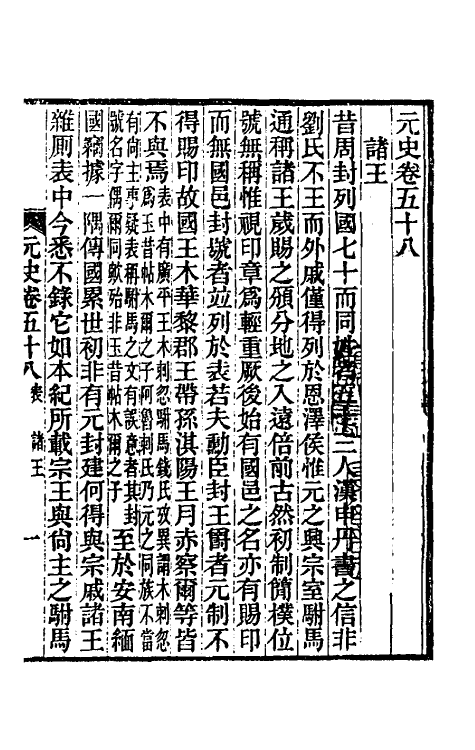 元史卷五十八
諸王
昔周封列國七十而同姓者五十三人漢申丹書之信非
劉氏不王而外戚僅得列於恩澤侯惟元之興宗室駙馬
通稱諸王歲賜之頒分地之入遠倍前古然初制簡樸位
號無稱惟視印章爲輕重厥後始有國邑之名亦有賜印
而無國邑封號者並列於表若夫勳臣封王爵者元制不
得賜印故國王木華黎郡王帶孫淇陽王月赤察爾等皆
不與焉表中有廣平王木剌忽駙馬錢氏攷異謂木剌忽
爲玉昔帖木爾之子阿魯剌氏乃元之同族不當
有尙主事疑表稱駙馬之文有誤意者其封
號名字偶爾同歟殆非玉昔帖木爾之子至於安南緬
國竊據一隅傳國累世初非有元封建何得與宗戚諸王
雜厠表中今悉不錄它如本紀所載宗王與尙主之駙馬
元史卷五十八 表 諸王 一